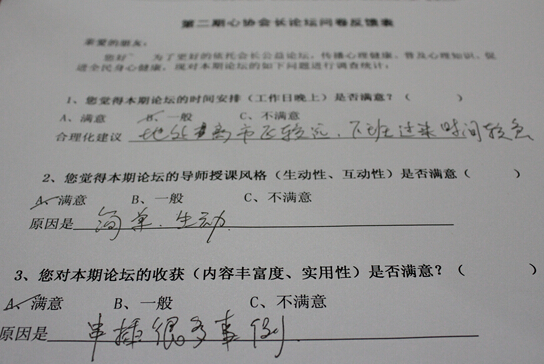 第二期心协会长论坛问卷反馈表
亲爱的朋友：
您好！为了更好的依托会长公益论坛，传播心理健康，普及心理知识，促
进全民身心健康，现对本期论坛的如下问题进行调查统计：
1、您觉得本期论坛的时间安排（工作日晚上）是否满意？（ ）
A、满意 B、一般 C、不满意
合理化建议 地处离市区较远，下班过来时间较急
2、您觉得本期论坛的导师授课风格（生动性、互动性）是否满意（ ）
A、满意 B、一般 C、不满意
原因是 简单、生动.
3、您对本期论坛的收获（内容丰富度、实用性）是否满意？（ ）
A、满意 B、一般 C、不满意
原因是 串插很多事例.